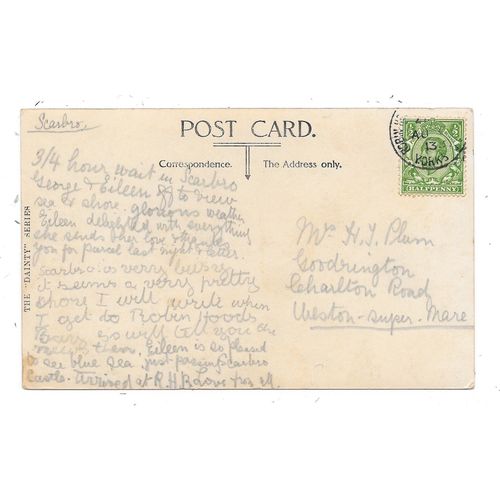 Scarbro.
POST CARD.
Correspondence.
The Address only.
THE "DAINTY" SERIES
AU
13
YORKS
HALFPENNY
3/4 hour wait in Scarbro
George & Eileen off to view
sea & shore. glorious weather
Eileen delighted with everything
she sends her love & thanks
you for parcel last night & letter.
Scarbro' is very busy
it seems a very pretty
shore I will write when
I get to Robin Hoods
Bay so will tell you the
them. Eileen is so pleased
to see blue sea. just passing Scarbro
Castle. Arrived at R.H.B. Love from M
Mrs H.J. Plum
Goodrington
Charlton Road
Weston-super-Mare